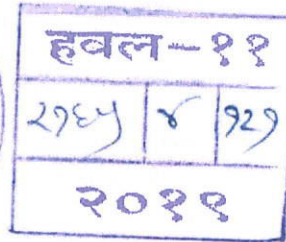 हवल-११
२१६५ ४ १२१
२०१९